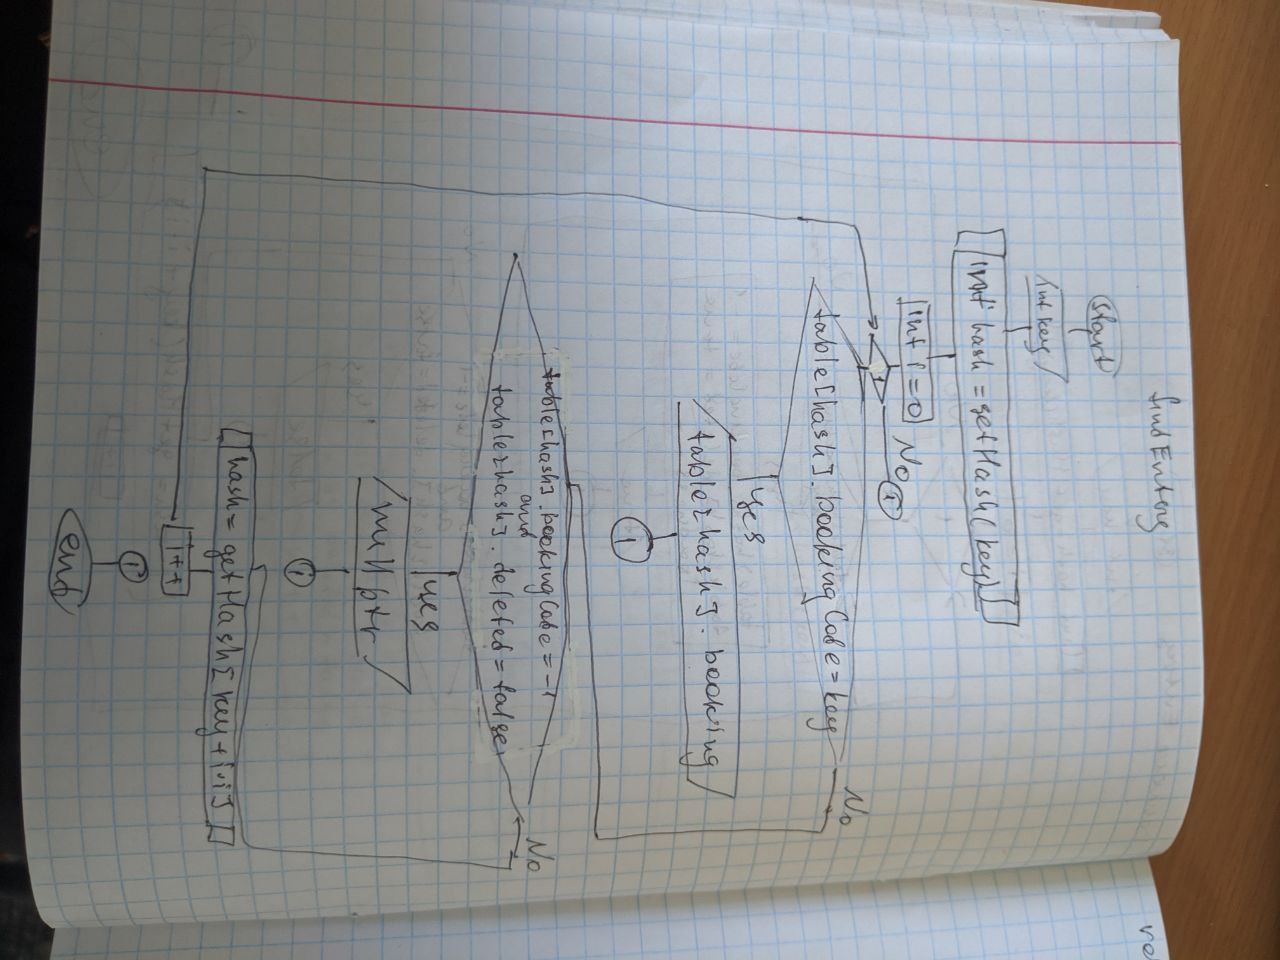 find Entery
Start
int key
int hash = getHash(key)
int i=0
No
1
1
table[hash].bookingCode=key
No
yes
table[hash].booking
1
table[hash].bookingCode=-1
and
table[hash].deleted=false
No
yes
nullptr
1
hash=getHash[key+i·i]
i++
1
end
re